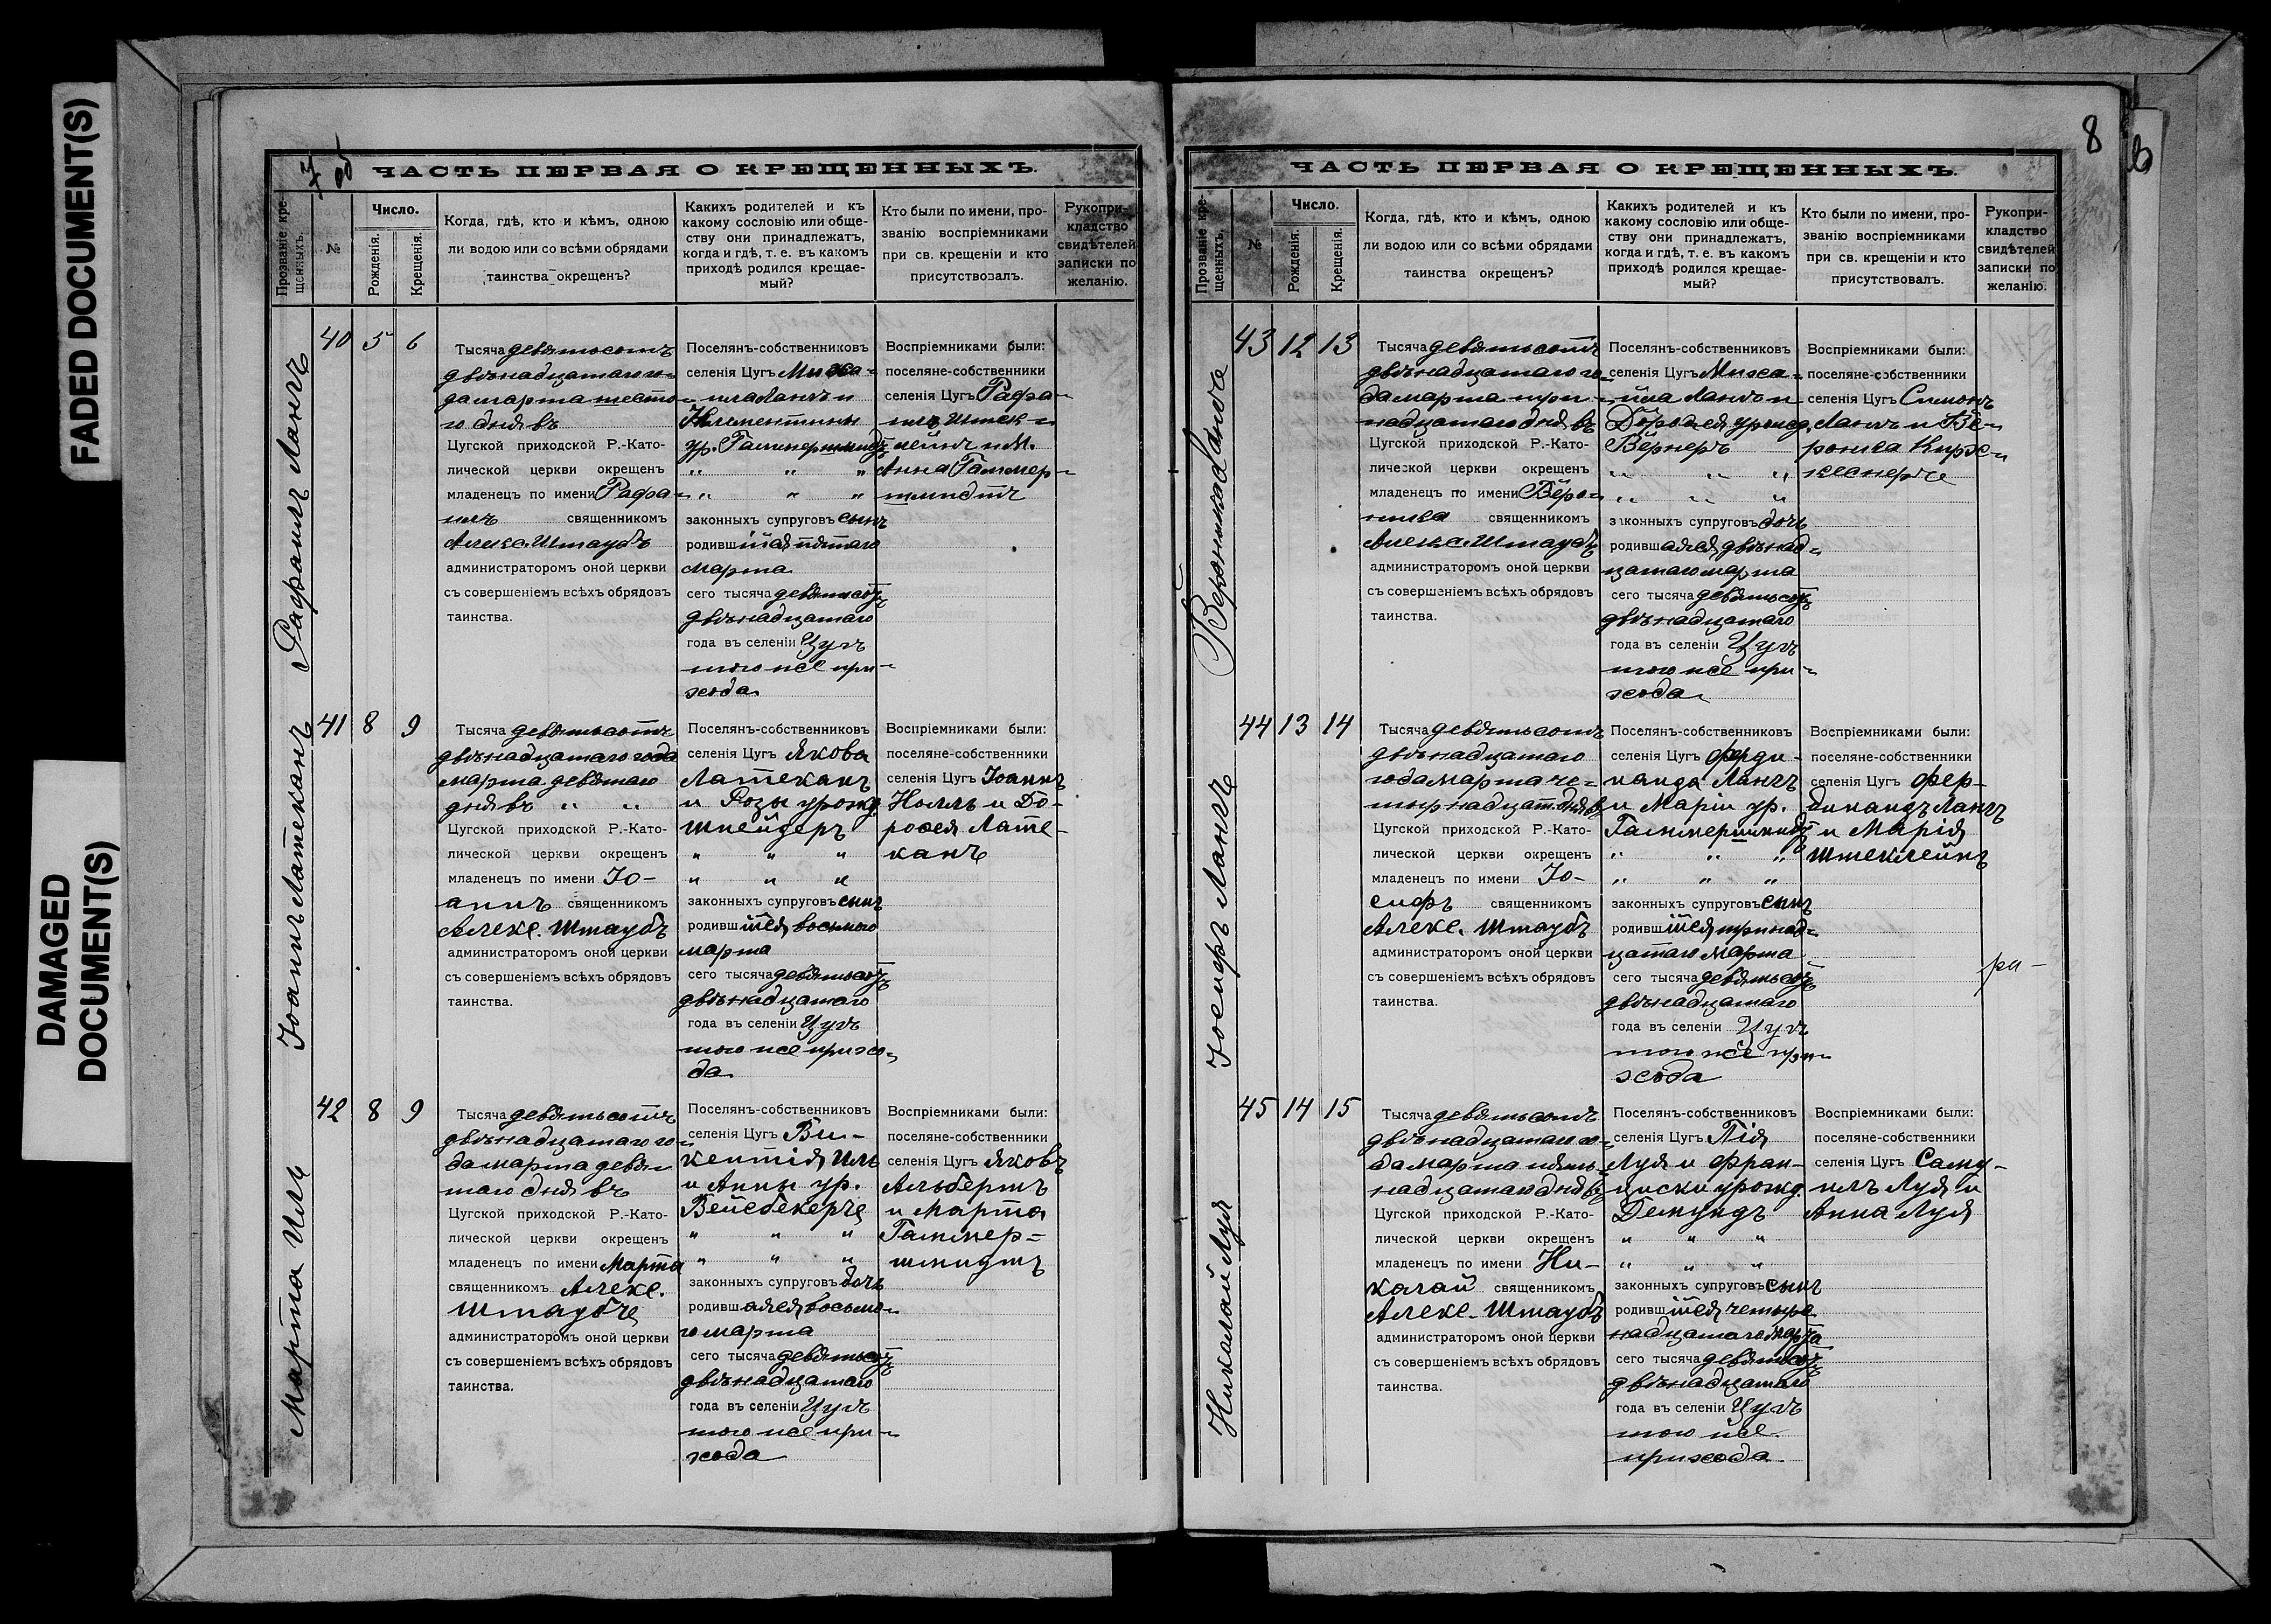 FADED DOCUMENT(S)
DAMAGED
DOCUMENT(S)
об
ЧАСТЬ ПЕРВАЯ О КРЕЩЕННЫХЪ.
Прозваніе кре-
щенныхъ.
№
Число.
Рожденія.
Крещенія.
Когда, гдѣ, кто и кѣмъ, одною
ли водою или со всѣми обрядами
таинства окрещенъ?
Какихъ родителей и къ
какому сословію или обще-
ству они принадлежатъ,
когда и гдѣ, т. е. въ какомъ
приходѣ родился крещае-
мый?
Кто были по имени, про-
званію воспріемниками
при св. крещеніи и кто
присутствовалъ.
Рукопри-
кладство
свидѣтелей
записки по
желанію.
Рафаилъ Лангъ
40 5 6
Тысяча девятьсотъ
двѣнадцатаго го-
да марта шесто-
го дня въ
Цугской приходской Р.-Като-
лической церкви окрещенъ
младенецъ по имени Рафа-
илъ священникомъ
Алекс. Штаубъ
администраторомъ оной церкви
съ совершеніемъ всѣхъ обрядовъ
таинства.
Поселянъ-собственниковъ
селенія Цугъ Миха-
ила Лангъ и
Клементины
ур. Гаммершмидтъ
" " "
" " "
законныхъ супруговъ сынъ
родившійся пятаго
марта
сего тысяча девятьсотъ
двѣнадцатаго
года въ селеніи Цугъ
того же при-
хода
Воспріемниками были:
поселяне-собственники
селенія Цугъ Рафа-
илъ Штек-
лейнъ и М.
Анна Гаммер-
шмидтъ
Іоаннъ Латеканъ
41 8 9
Тысяча девятьсотъ
двѣнадцатаго года
марта девятаго
дня въ " "
Цугской приходской Р.-Като-
лической церкви окрещенъ
младенецъ по имени Іо-
аннъ священникомъ
Алекс. Штаубъ
администраторомъ оной церкви
съ совершеніемъ всѣхъ обрядовъ
таинства.
Поселянъ-собственниковъ
селенія Цугъ Якова
Латеканъ
и Розы урожд.
Шнейдеръ
" " "
" " "
законныхъ супруговъ сынъ
родившійся восьмого
марта
сего тысяча девятьсотъ
двѣнадцатаго
года въ селеніи Цугъ
того же прихо-
да
Воспріемниками были:
поселяне-собственники
селенія Цугъ Іоаннъ
Нолль и До-
рофея Лате-
канъ
Марта Иль
42 8 9
Тысяча девятьсотъ
двѣнадцатаго го-
да марта девя-
таго дня въ
Цугской приходской Р.-Като-
лической церкви окрещенъ
младенецъ по имени Марта
священникомъ Алекс.
Штаубъ
администраторомъ оной церкви
съ совершеніемъ всѣхъ обрядовъ
таинства.
Поселянъ-собственниковъ
селенія Цугъ Ви-
кентія Иль
и Анны ур.
Вейсбекеръ
" " "
" " "
законныхъ супруговъ дочь
родившаяся восьмо-
го марта
сего тысяча девятьсотъ
двѣнадцатаго
года въ селеніи Цугъ
того же при-
хода
Воспріемниками были:
поселяне-собственники
селенія Цугъ Яковъ
Альбертъ
и Марта
Гаммер-
шмидтъ
8
ЧАСТЬ ПЕРВАЯ О КРЕЩЕННЫХЪ.
Прозваніе кре-
щенныхъ.
№
Число.
Рожденія.
Крещенія.
Когда, гдѣ, кто и кѣмъ, одною
ли водою или со всѣми обрядами
таинства окрещенъ?
Какихъ родителей и къ
какому сословію или обще-
ству они принадлежатъ,
когда и гдѣ, т. е. въ какомъ
приходѣ родился крещае-
мый?
Кто были по имени, про-
званію воспріемниками
при св. крещеніи и кто
присутствовалъ.
Рукопри-
кладство
свидѣтелей
записки по
желанію.
Вероника Лангъ
43 12 13
Тысяча девятьсотъ
двѣнадцатаго го-
да марта три-
надцатаго дня въ
Цугской приходской Р.-Като-
лической церкви окрещенъ
младенецъ по имени Веро-
ника священникомъ
Алекс. Штаубъ
администраторомъ оной церкви
съ совершеніемъ всѣхъ обрядовъ
таинства.
Поселянъ-собственниковъ
селенія Цугъ Миха-
ила Лангъ и
Дорофея урожд.
Вернеръ
" " "
" " "
законныхъ супруговъ дочь
родившаяся двѣнад-
цатаго марта
сего тысяча девятьсотъ
двѣнадцатаго
года въ селеніи Цугъ
того же при-
хода
Воспріемниками были:
поселяне-собственники
селенія Цугъ Симонъ
Лангъ и Ве-
роника Кирх-
геснеръ
Іосифъ Лангъ
44 13 14
Тысяча девятьсотъ
двѣнадцатаго
года марта че-
тырнадцат. дня въ
Цугской приходской Р.-Като-
лической церкви окрещенъ
младенецъ по имени Іо-
сифъ священникомъ
Алекс. Штаубъ
администраторомъ оной церкви
съ совершеніемъ всѣхъ обрядовъ
таинства.
Поселянъ-собственниковъ
селенія Цугъ Ферди-
нанда Лангъ
и Маріи ур.
Гаммершмидтъ
" " "
" " "
законныхъ супруговъ сынъ
родившійся тринад-
цатаго марта
сего тысяча девятьсотъ
двѣнадцатаго
года въ селеніи Цугъ
того же при-
хода
Воспріемниками были:
поселяне-собственники
селенія Цугъ Фер-
динандъ Лангъ
и Марія
Штеклейнъ
ри-
Николай Луя
45 14 15
Тысяча девятьсотъ
двѣнадцатаго го-
да марта пят-
надцатаго дня въ
Цугской приходской Р.-Като-
лической церкви окрещенъ
младенецъ по имени Ни-
колай священникомъ
Алекс. Штаубъ
администраторомъ оной церкви
съ совершеніемъ всѣхъ обрядовъ
таинства.
Поселянъ-собственниковъ
селенія Цугъ Пія
Луя и Фран-
циски урожд.
Демундъ
" " "
" " "
законныхъ супруговъ сынъ
родившійся четыре
надцатаго марта
сего тысяча девятьсотъ
двѣнадцатаго
года въ селеніи Цугъ
того же
прихода
Воспріемниками были:
поселяне-собственники
селенія Цугъ Саму-
илъ Луя и
Анна Луя